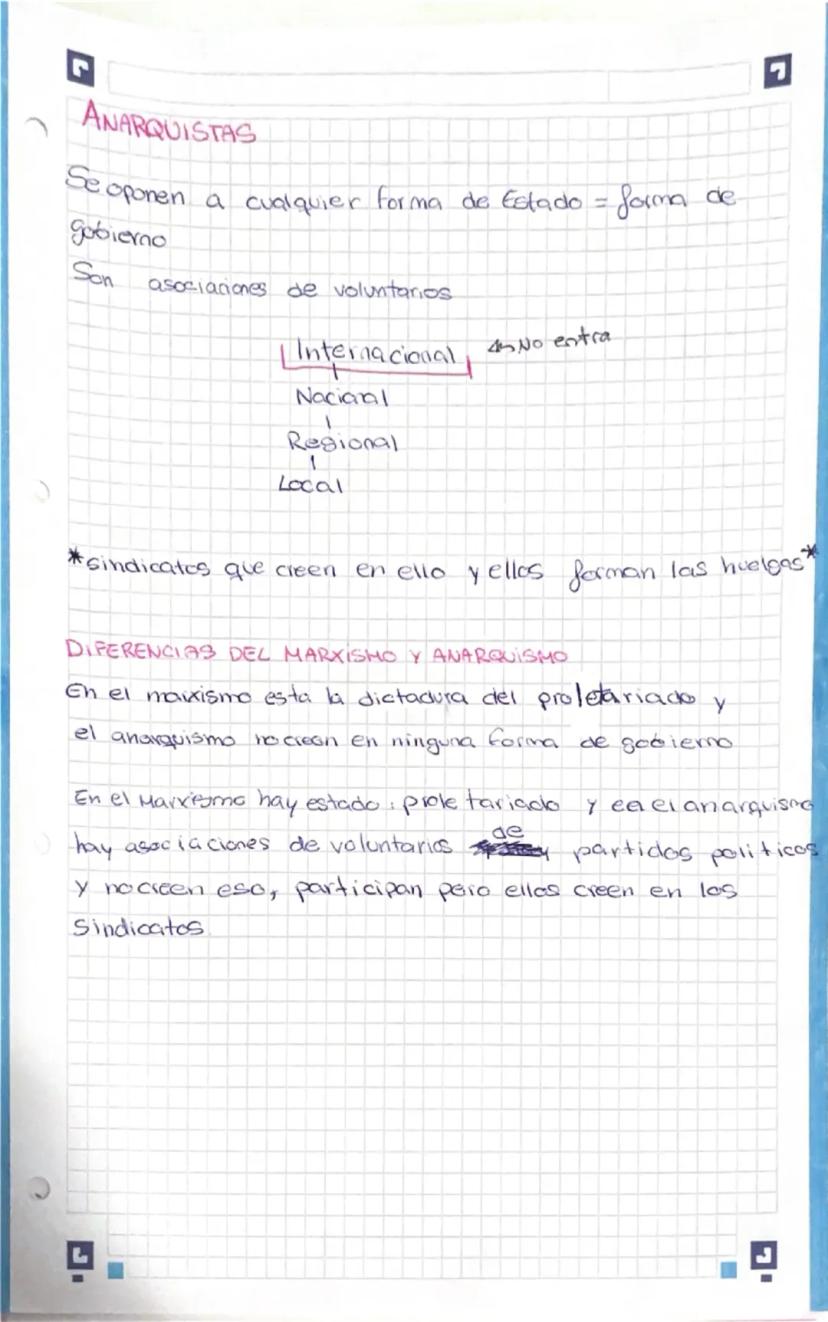 ANARQUISTAS
Se oponen a cualquier forma de Estado = forma de
gobierno
Son asociaciones de voluntarios
Internacional ⇦ No entra
Nacional
Regional
Local
*Sindicatos que creen en ello y ellos forman las huelgas*
DIFERENCIAS DEL MARXISMO Y ANARQUISMO
En el marxismo esta la dictadura del proletariado y
el anarquismo no creen en ninguna forma de gobierno
En el Marxismo hay estado: proletariado y en el anarquismo
hay asociaciones de voluntarios de partidos politicos
y no creen eso, participan pero ellos creen en los
Sindicatos